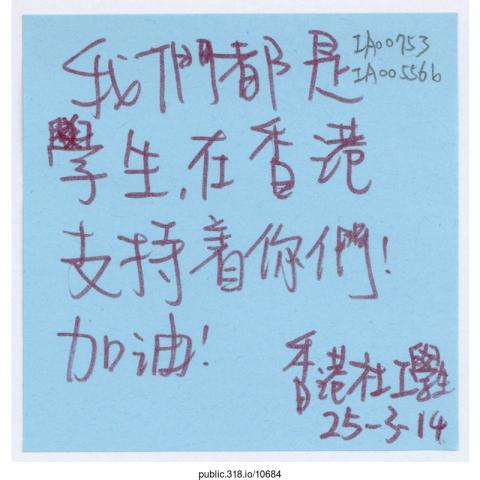 我們都是
IA00753
IA005566
學生,在香港
支持着你們!
加油!
香港社工學生
25-3-14
public.318.io/10684